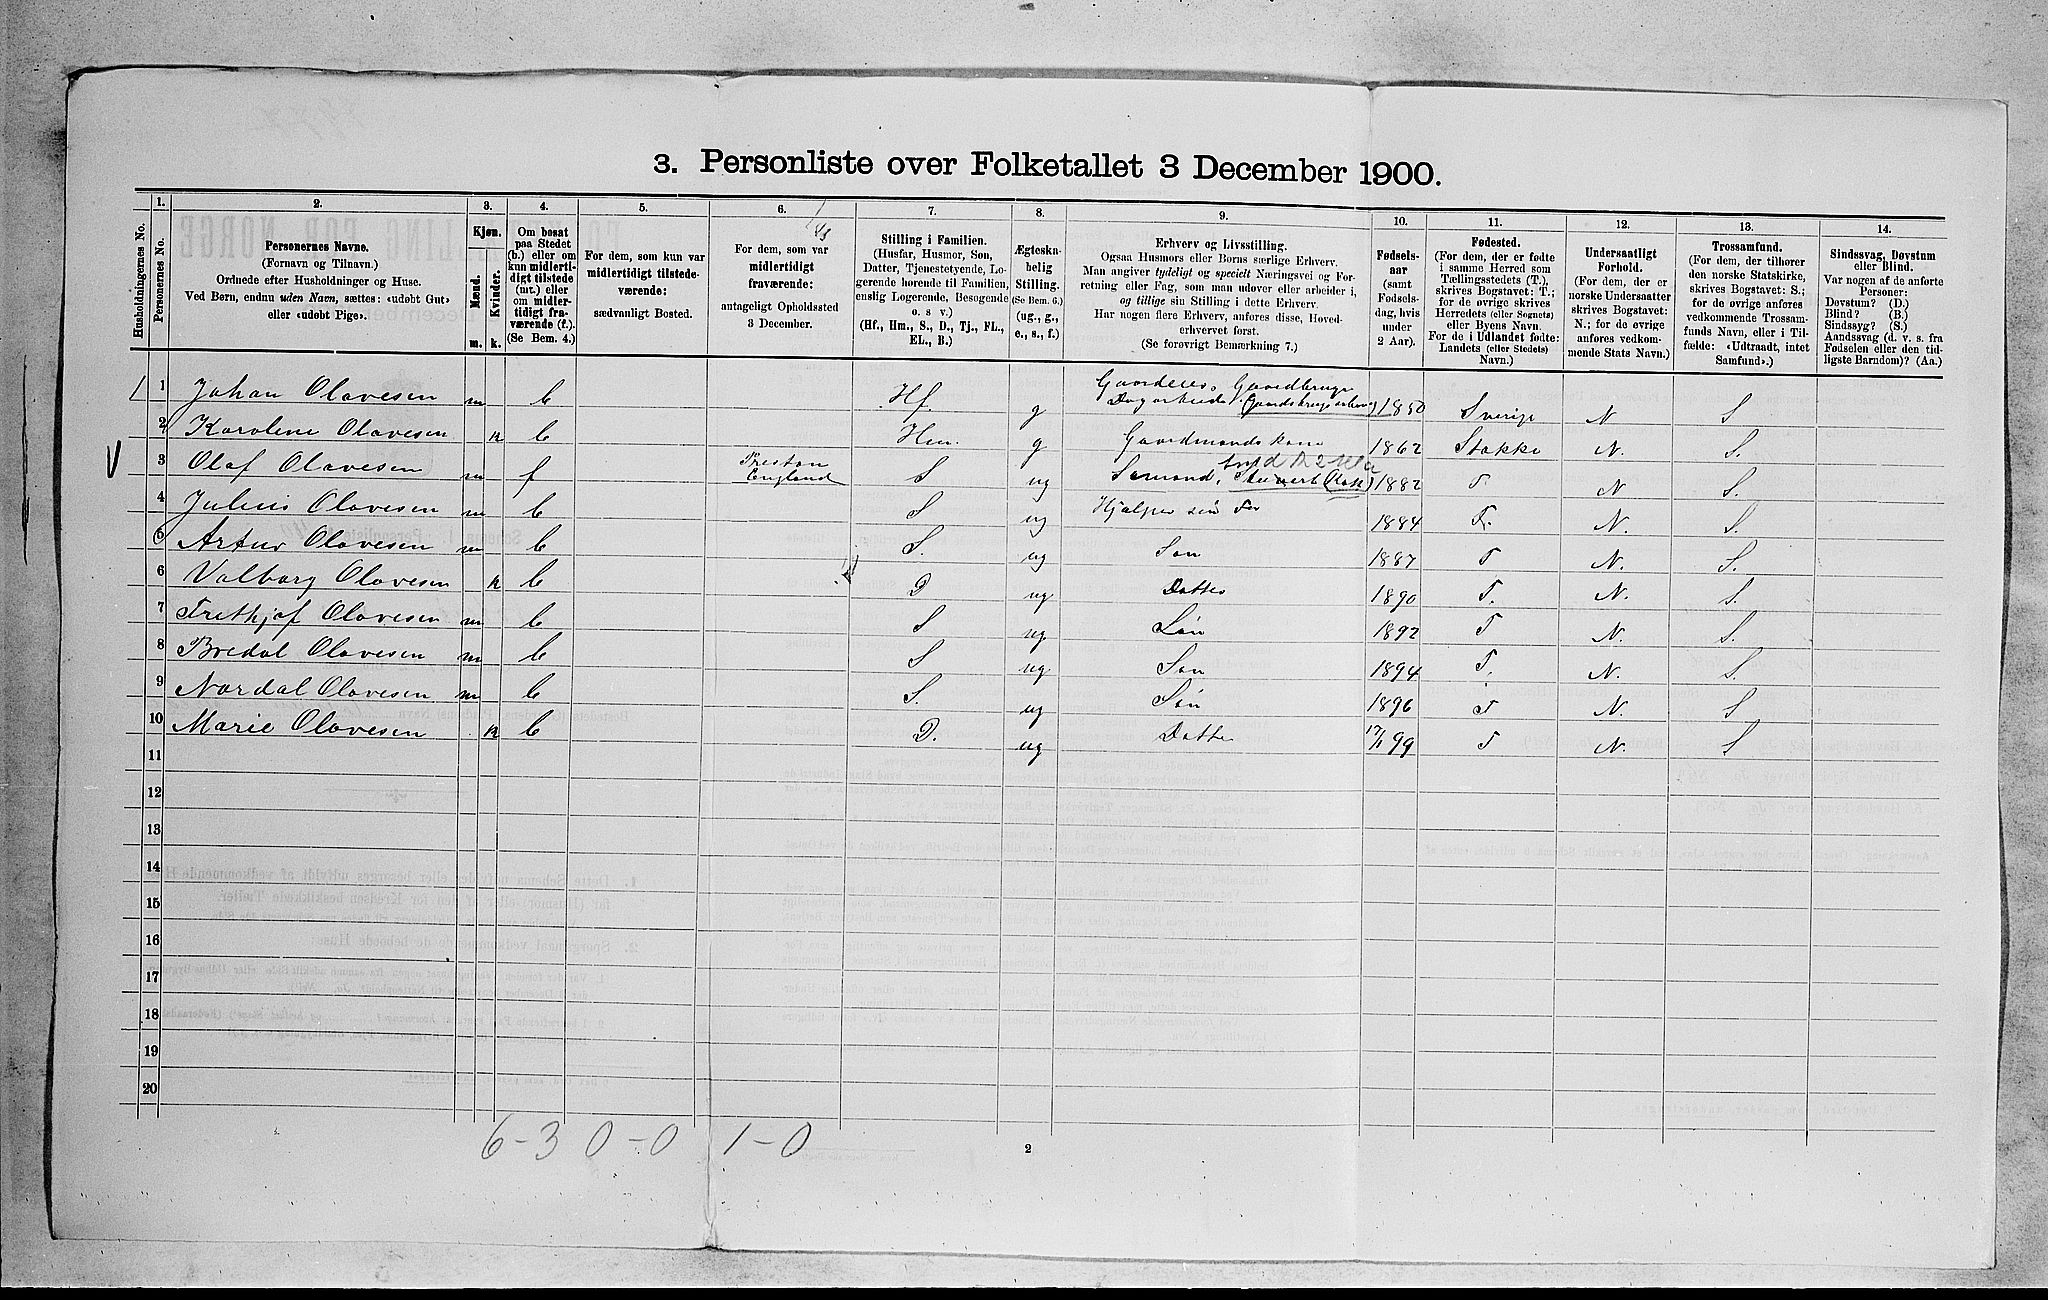 3. Personliste over Folketallet 3 December 1900.
1. 2. 3. 4. 5. 6. 7. 8. 9. 10. 11. 12. 13. 14.
Husholdningernes No.
Personernes No.
Personernes Navne.
(Fornavn og Tilnavn.)
Ordnede efter Husholdninger og Huse.
Ved Børn, endnu uden Navn, sættes: «udøbt Gut»
eller «udøbt Pige».
Kjøn.
Mænd.
Kvinder.
m. k.
Om bosat
paa Stedet
(b.) eller om
kun midlerti-
digt tilstede
(mt.) eller
om midler-
tidigt fra-
værende (f.).
(Se Bem. 4.)
For dem, som kun var
midlertidigt tilstede-
værende:
sædvanligt Bosted.
For dem, som var
midlertidigt
fraværende:
antageligt Opholdssted
3 December.
Stilling i Familien.
(Husfar, Husmor, Søn,
Datter, Tjenestetyende, Lo-
gerende hørende til Familien,
enslig Logerende, Besøgende
o. s v.)
(Hf., Hm., S., D., Tj., FL.,
EL., B.)
Ægteska-
belig
Stilling.
(Se Bem. 6.)
(ug., g.,
e., s., f.)
Erhverv og Livsstilling.
Ogsaa Husmors eller Børns særlige Erhverv.
Man angiver tydeligt og specielt Næringsvei og For-
retning eller Fag, som man udøver eller arbeider i,
og tillige sin Stilling i dette Erhverv.
Har nogen flere Erhverv, anføres disse, Hoved-
erhvervet først.
(Se forøvrigt Bemærkning 7.)
Fødsels-
aar
(samt
Fødsels-
dag, hvis
under
2 Aar).
Fødested.
(For dem, der er fødte
i samme Herred som
Tællingsstedets (T.),
skrives Bogstavet: T.;
for de øvrige skrives
Herredets (eller Sognets)
eller Byens Navn.
For de i Udlandet fødte:
Landets (eller Stedets)
Navn.)
Undersaatligt
Forhold.
(For dem, der er
norske Undersaatter
skrives Bogstavet:
N.; for de øvrige
anføres vedkom-
mende Stats Navn.)
Trossamfund.
(For dem, der tilhører
den norske Statskirke,
skrives Bogstavet: S.;
for de øvrige anføres
vedkommende Trossam-
funds Navn, eller i Til-
fælde: «Udtraadt, intet
Samfund».)
Sindssvag, Døvstum
eller Blind.
Var nogen af de anførte
Personer:
Døvstum? (D.)
Blind? (B.)
Sindssyg? (S.)
Aandssvag (d. v. s. fra
Fødselen eller den tid-
ligste Barndom)? (Aa.)
1 Johan Olavesen m b Hf. g 1850 Sverige N S.
2 Karolene Olavesen k b Hm. g Gaardmandskone 1862 Stokke N. S.
3 Olaf Olavesen m f Preston England S ug Sømand, 1882 T. N S.
4 Julius Olavesen m b S ug Hjælper sin Far 1884 T. N. S.
5 Artur Olavesen m b S. ug Søn 1887 T N. S.
6 Valborg Olavesen k b D ug Datter 1890 T. N. S.
7 Frethjof Olavesen m b S ug Søn 1892 T N. S.
8 Bredal Olavesen m b S ug Søn 1894 T. N. S.
9 Nordal Olavesen m b S. ug Søn 1896 T N. S
10 Marie Olavesen k b D. ug Datter 17/1 99 T N. S
11
12
13
14
15
16
17
18
19
20
6 - 3 0 - 0 1 - 0
2